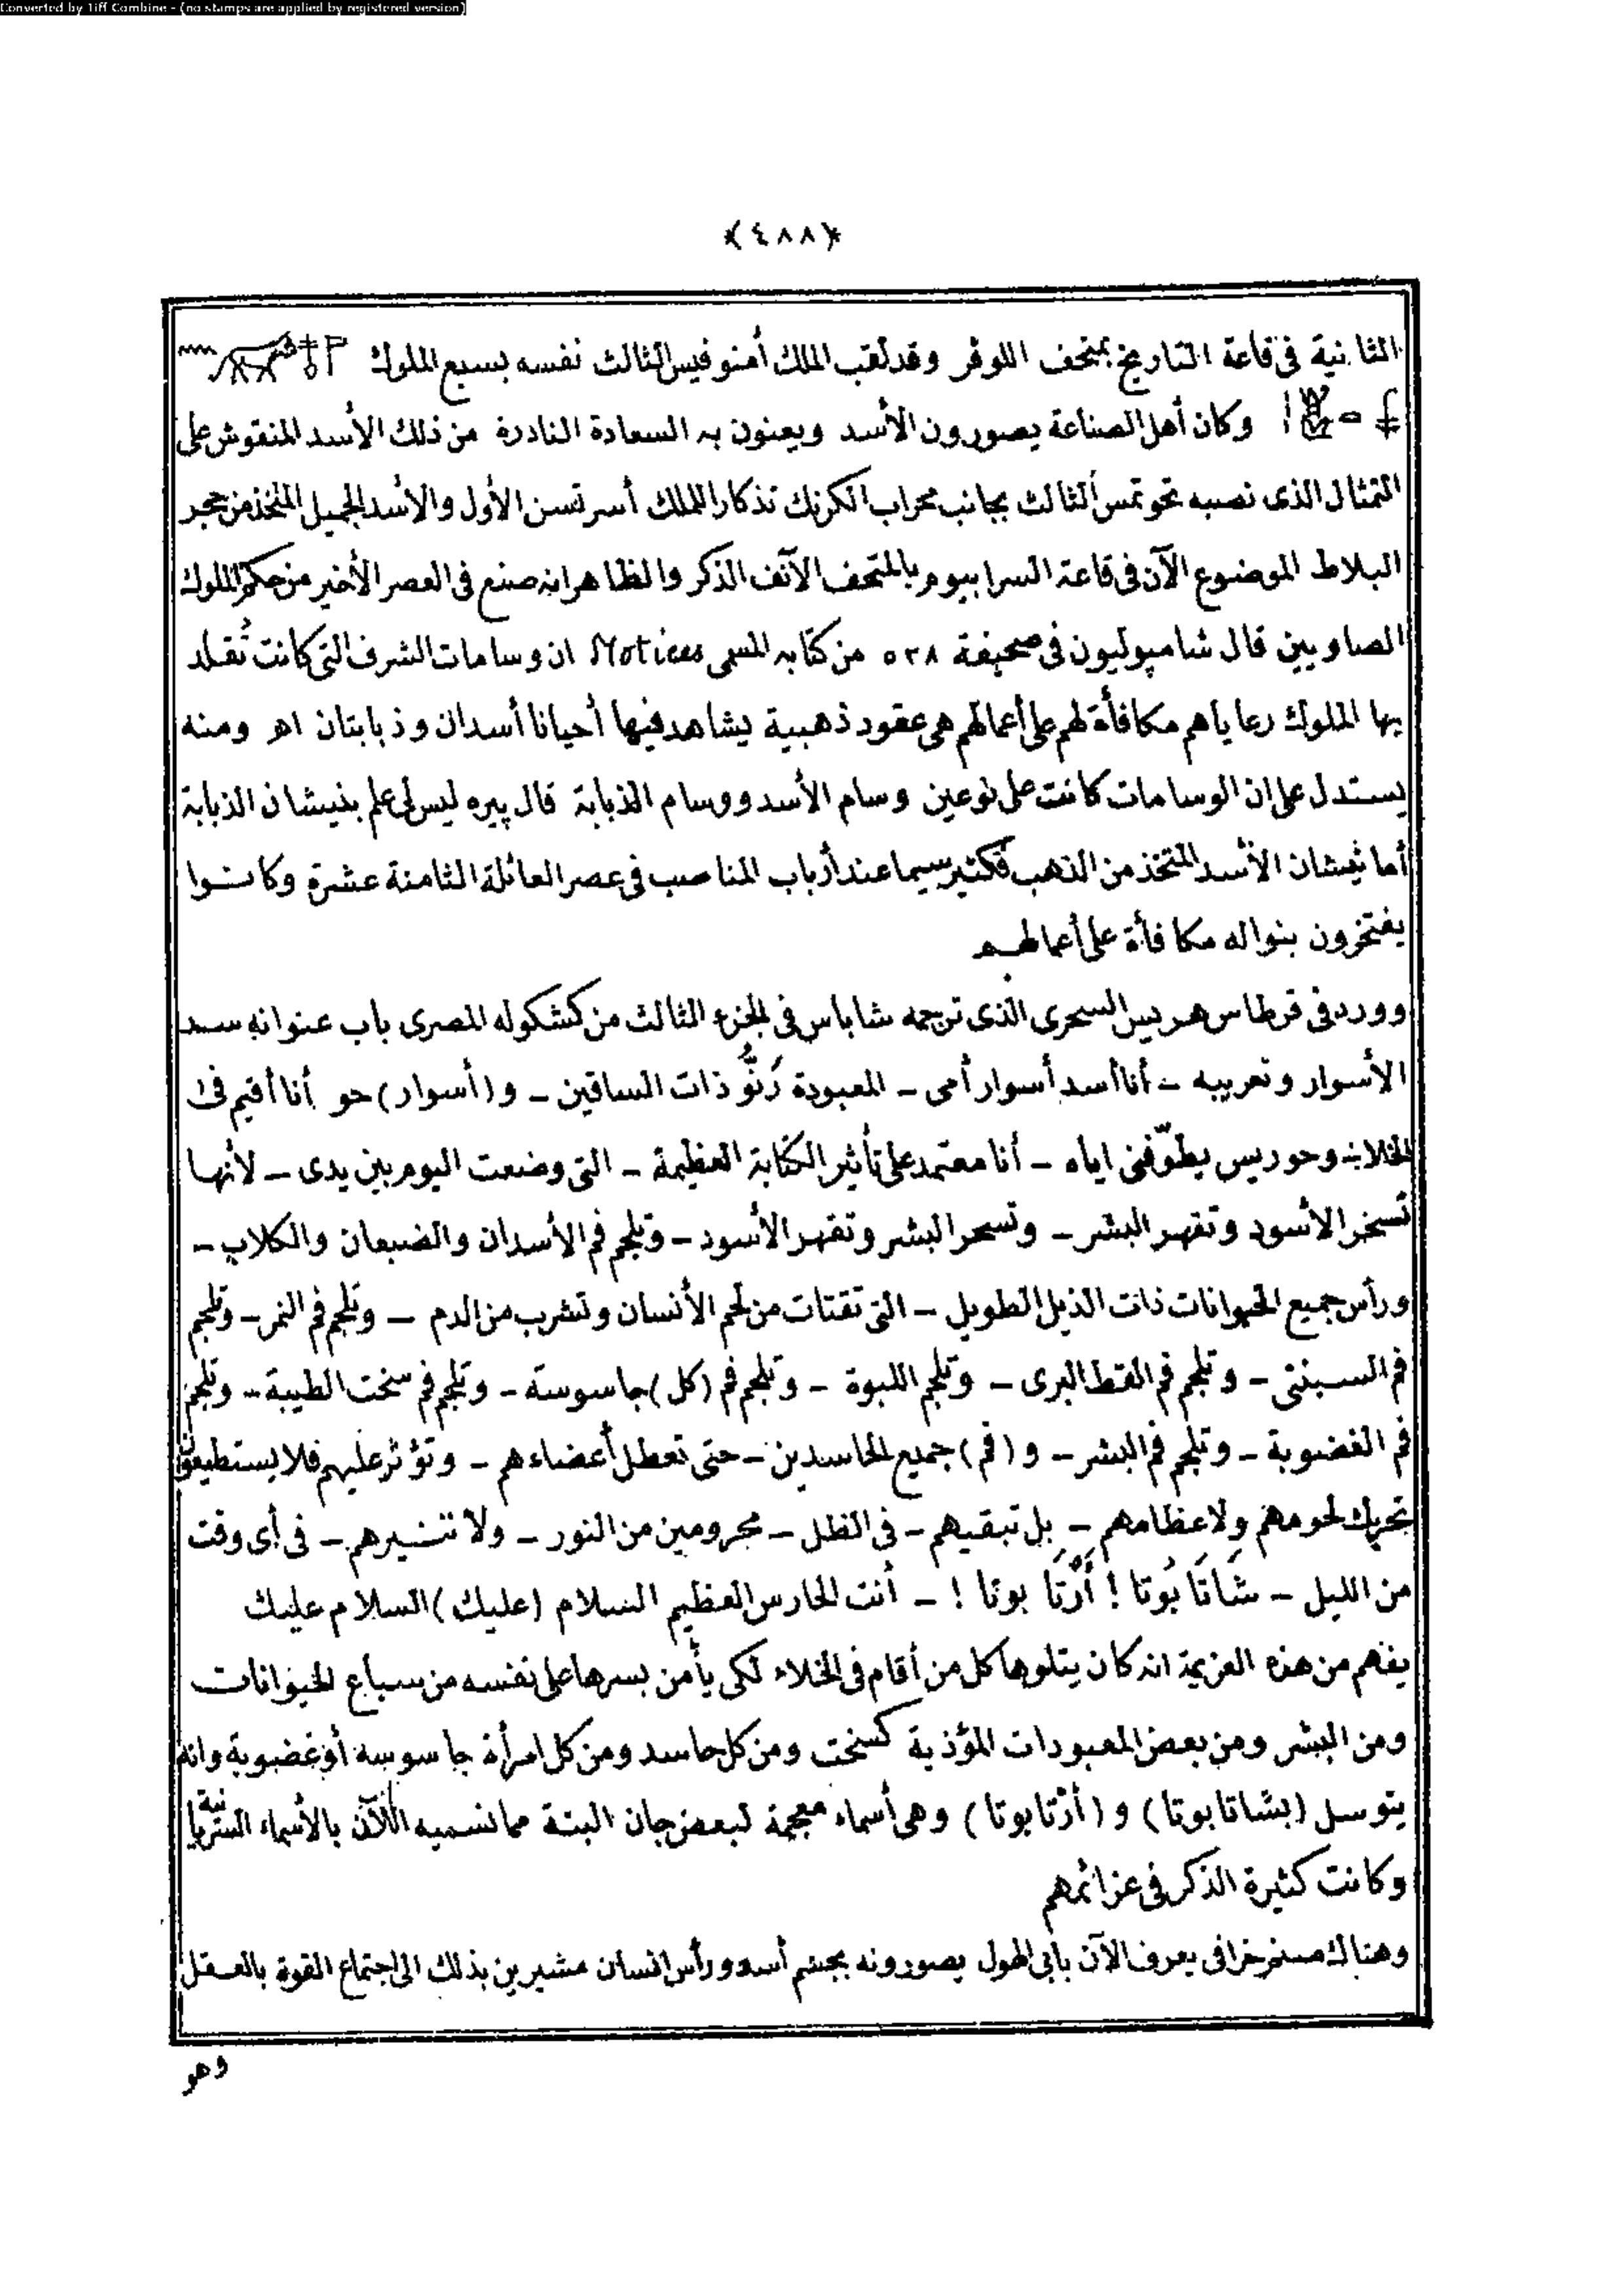 Converted by Tiff Combine - (no stamps are applied by registered version)
﴿٤٨٨﴾
الثانية فى قاعة التاريخ بمتحف اللوفر وقد لقب الملك أمنوفيس الثالث نفسه بسبع الملوك
وكان أهل الصناعة يصورون الأسد ويعنون به السعادة النادرة من ذلك الأسد المنقوش على
التمثال الذى نصبه تحوتمس الثالث بجانب محراب الكرنك تذكارا للملك أسرتسن الأول والأسد الجميل المتخذ من حجر
البلاط الموضوع الآن فى قاعة السرابيوم بالمتحف الآنف الذكر والظاهر انه صنع فى العصر الأخير من حكم الملوك
الصاويين قال شامپوليون فى صحيفة ٥٢٨ من كتابه المسمى Notices ان وسامات الشرف التى كانت تُقلد
بها الملوك رعاياهم مكافأة لهم على أعمالهم هى عقود ذهبية يشاهد فيها أحيانا أسدان وذبابتان اهـ ومنه
يستدل على ان الوسامات كانت على نوعين وسام الأسد ووسام الذبابة قال پيره ليس لى علم بنيشان الذبابة
أما نيشان الأسد المتخذ من الذهب فكثير سيما عند أرباب المناصب فى عصر العائلة الثامنة عشرة وكانوا
يفتخرون بنواله مكافأة على أعمالهم
وورد فى قرطاس هريس السحرى الذى ترجمه شاباس فى الجزء الثالث من كشكوله المصرى باب عنوانه سد
الأسوار وتعريبه - أنا أسد أسوار أمى - المعبودة رَنُّو ذات الساقين - و(أسوار) حو أنا أقيم فى
الخلاء وحوريس يطوّفنى اياه - أنا معتمد على تأثير الكتابة العظيمة - التى وضعت اليوم بين يدى - لأنها
تسخر الأسود وتقهر البشر - وتسحر البشر وتقهر الأسود - وتلجم فم الأسدان والضبعان والكلاب -
ورأس جميع الحيوانات ذات الذيل الطويل - التى تقتات من لحم الأنسان وتشرب من الدم - وتلجم فم النمر - وتلجم
فم السبنتى - وتلجم فم القط البرى - وتلجم اللبوة - وتلجم فم (كل) جاسوسة - وتلجم فم سخت الطيبة - وتلجم
فم الغضوبة - وتلجم فم البشر - و(فم) جميع الحاسدين - حتى تعطل أعضاءهم - وتؤثر عليهم فلا يستطيعون
تحريك لحومهم ولا عظامهم - بل تبقيهم - فى الظل - محرومين من النور - ولا تنسيرهم - فى أى وقت
من الليل - شَاتَا بُوتا ! أَرْتَا بوتا ! - أنت الحارس العظيم السلام (عليك) السلام عليك
يفهم من هذه العزيمة انه كان يتلوها كل من أقام فى الخلاء لكى يأمن بسرها على نفسه من سباع الحيوانات
ومن البشر ومن بعض المعبودات المؤذية كسخت ومن كل حاسد ومن كل امرأة جاسوسه أو غضوبة وانه
يتوسل (بشاتابوتا) و(أرْتابوتا) وهى أسماء معجمة لبعض جان البتة مما نسميه الآن بالأسماء السريانية
وكانت كثيرة الذكر فى عزائمهم
وهناك صنم خرافى يعرف الآن بابى الهول يصورونه بجسم أسد ورأس انسان مشيرين بذلك الى اجتماع القوة بالعقل
وهو